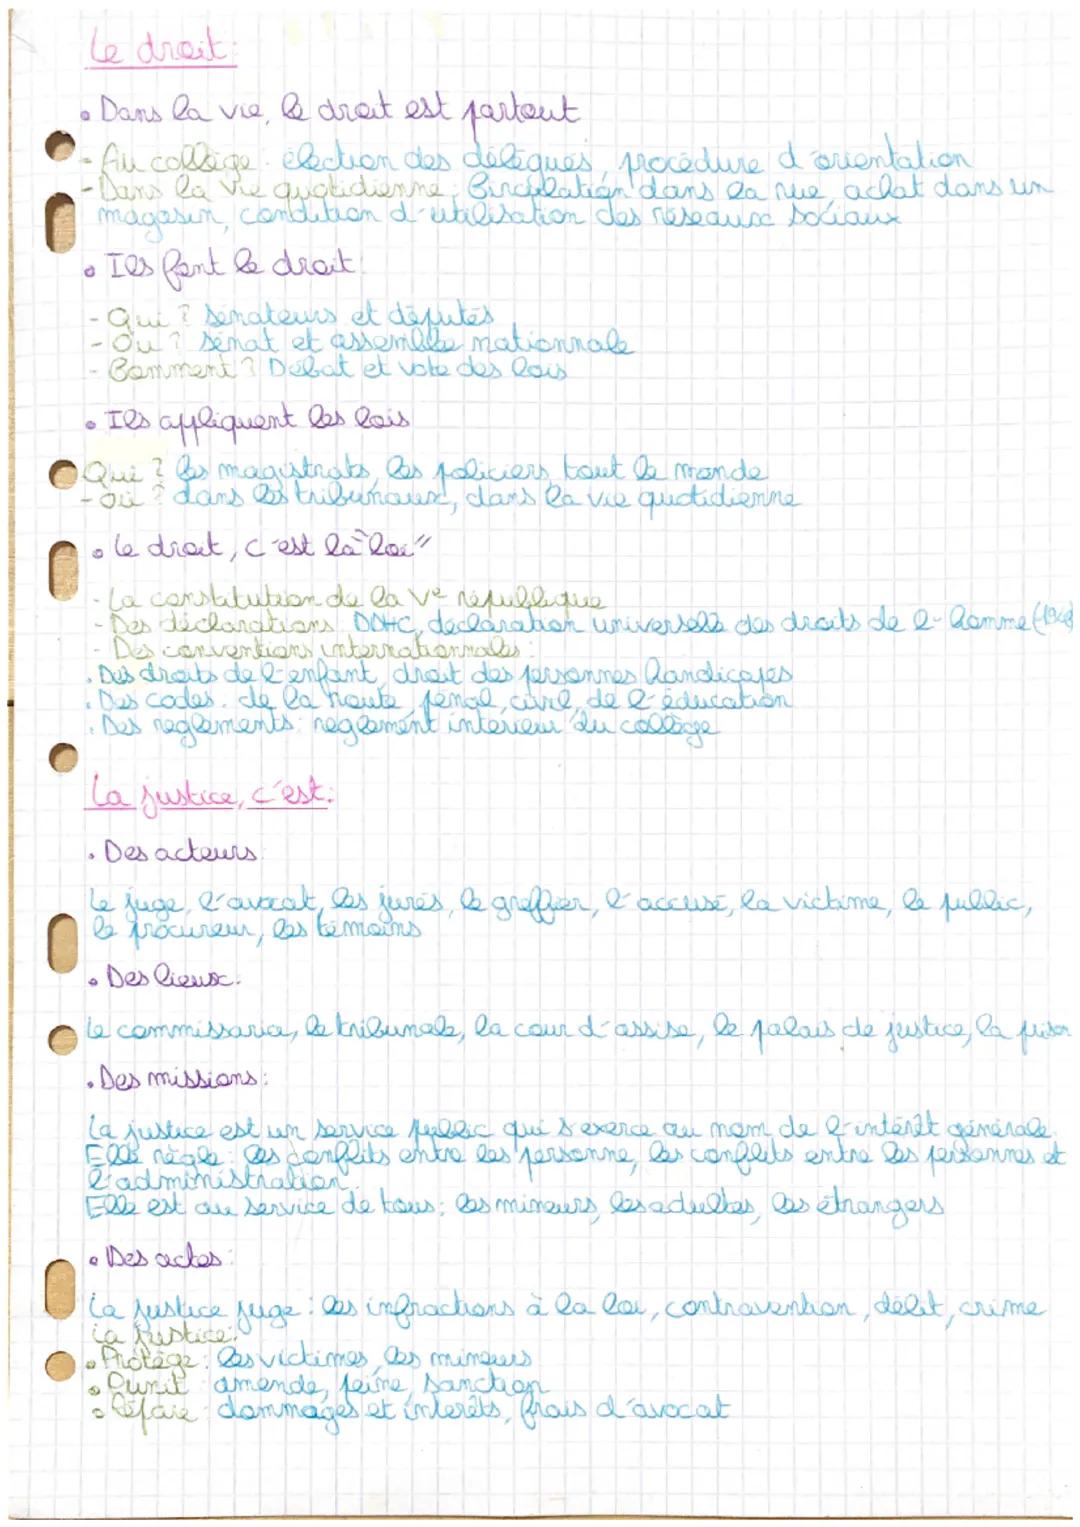 Le droit:
• Dans la vie, le droit est partout
- Au collège : élection des délégués, procédure d'orientation
- Dans la vie quotidienne : Circulation dans la rue, achat dans un
magasin, condition d'utilisation des réseaux sociaux
• Ils font le droit:
- Qui ? Sénateurs et députés
- Ou ? Sénat et assemblée nationnale
- Comment ? Débat et vote des lois
• Ils appliquent les lois
Qui ? les magistrats, les policiers, tout le monde
- où ? dans les tribunaux, dans la vie quotidienne
• le droit, c'est la "loi"
- La constitution de la Ve république
- Des déclarations : DDHC, déclaration universelle des droits de l'homme (1948)
- Des conventions internationnales :
. Des droits de l'enfant, droit des personnes handicapés
. Des codes : de la route, pénal, civil, de l'éducation
. Des reglements : reglement interieur du collège
La justice, c'est:
. Des acteurs:
Le juge, l'avocat, les jurés, le greffier, l'accusé, la victime, le public,
le procureur, les témoins
• Des lieux:
Le commissaria, le tribunale, la cour d'assise, le palais de justice, la prison
. Des missions:
La justice est un service public qui s'exerce au nom de l'intérêt générale.
Elle règle : les conflits entre les personne, les conflits entre les personnes et
l'administration.
Elle est au service de tous : les mineurs, les adultes, les étrangers
• Des actes:
La justice juge : les infractions à la loi, contravention, délit, crime
La justice:
• Protège : les victimes, les mineurs
• Punit : amende, peine, sanction
• Répare : dommages et interêts, frais d'avocat